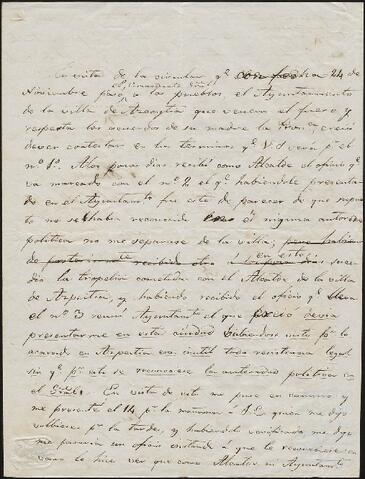 En vista de la circular qe con fecha 24 de
Noviembre pasó a los pueblos el Ayuntamiento
el Comandante Gral
de la villa de Azcoytia que venera el fuero y
respeta los acuerdos de su madre la Prova creyó
dever contestar en los terminos qe V.S. vera pr el
nº 1º. A los pocos dias recibí como Alcalde el oficio qe
va marcado con el nº 2 el qe habiendole presenta-
do en el Ayuntamto fue este de parecer de que supues-
to no se habia reconocido en él ninguna autoridad
politica no me separase de la villa;
en esto suce-
dió la tropelia cometida con el Alcalde de la villa
de Azpeitia, y habiendo recibido el oficio qe lleva
el nº 3 reuní Ayuntamto el que
presentarme en esta ciudad pr lo
acaecido en Azpeitia era inutil toda resistencia legal
sin qe pr esto se reconociese la autoridad politica en
el Gral. En vista de esto me puse en camino y
me presenté el 14 pr la mañana á S.E. quien me dijo
volviese pr la tarde, y habiendolo verificado me dijo
me pasaria un oficio á que le reconociese en
vano le hice ver que como Alcalde ni Ayuntamto